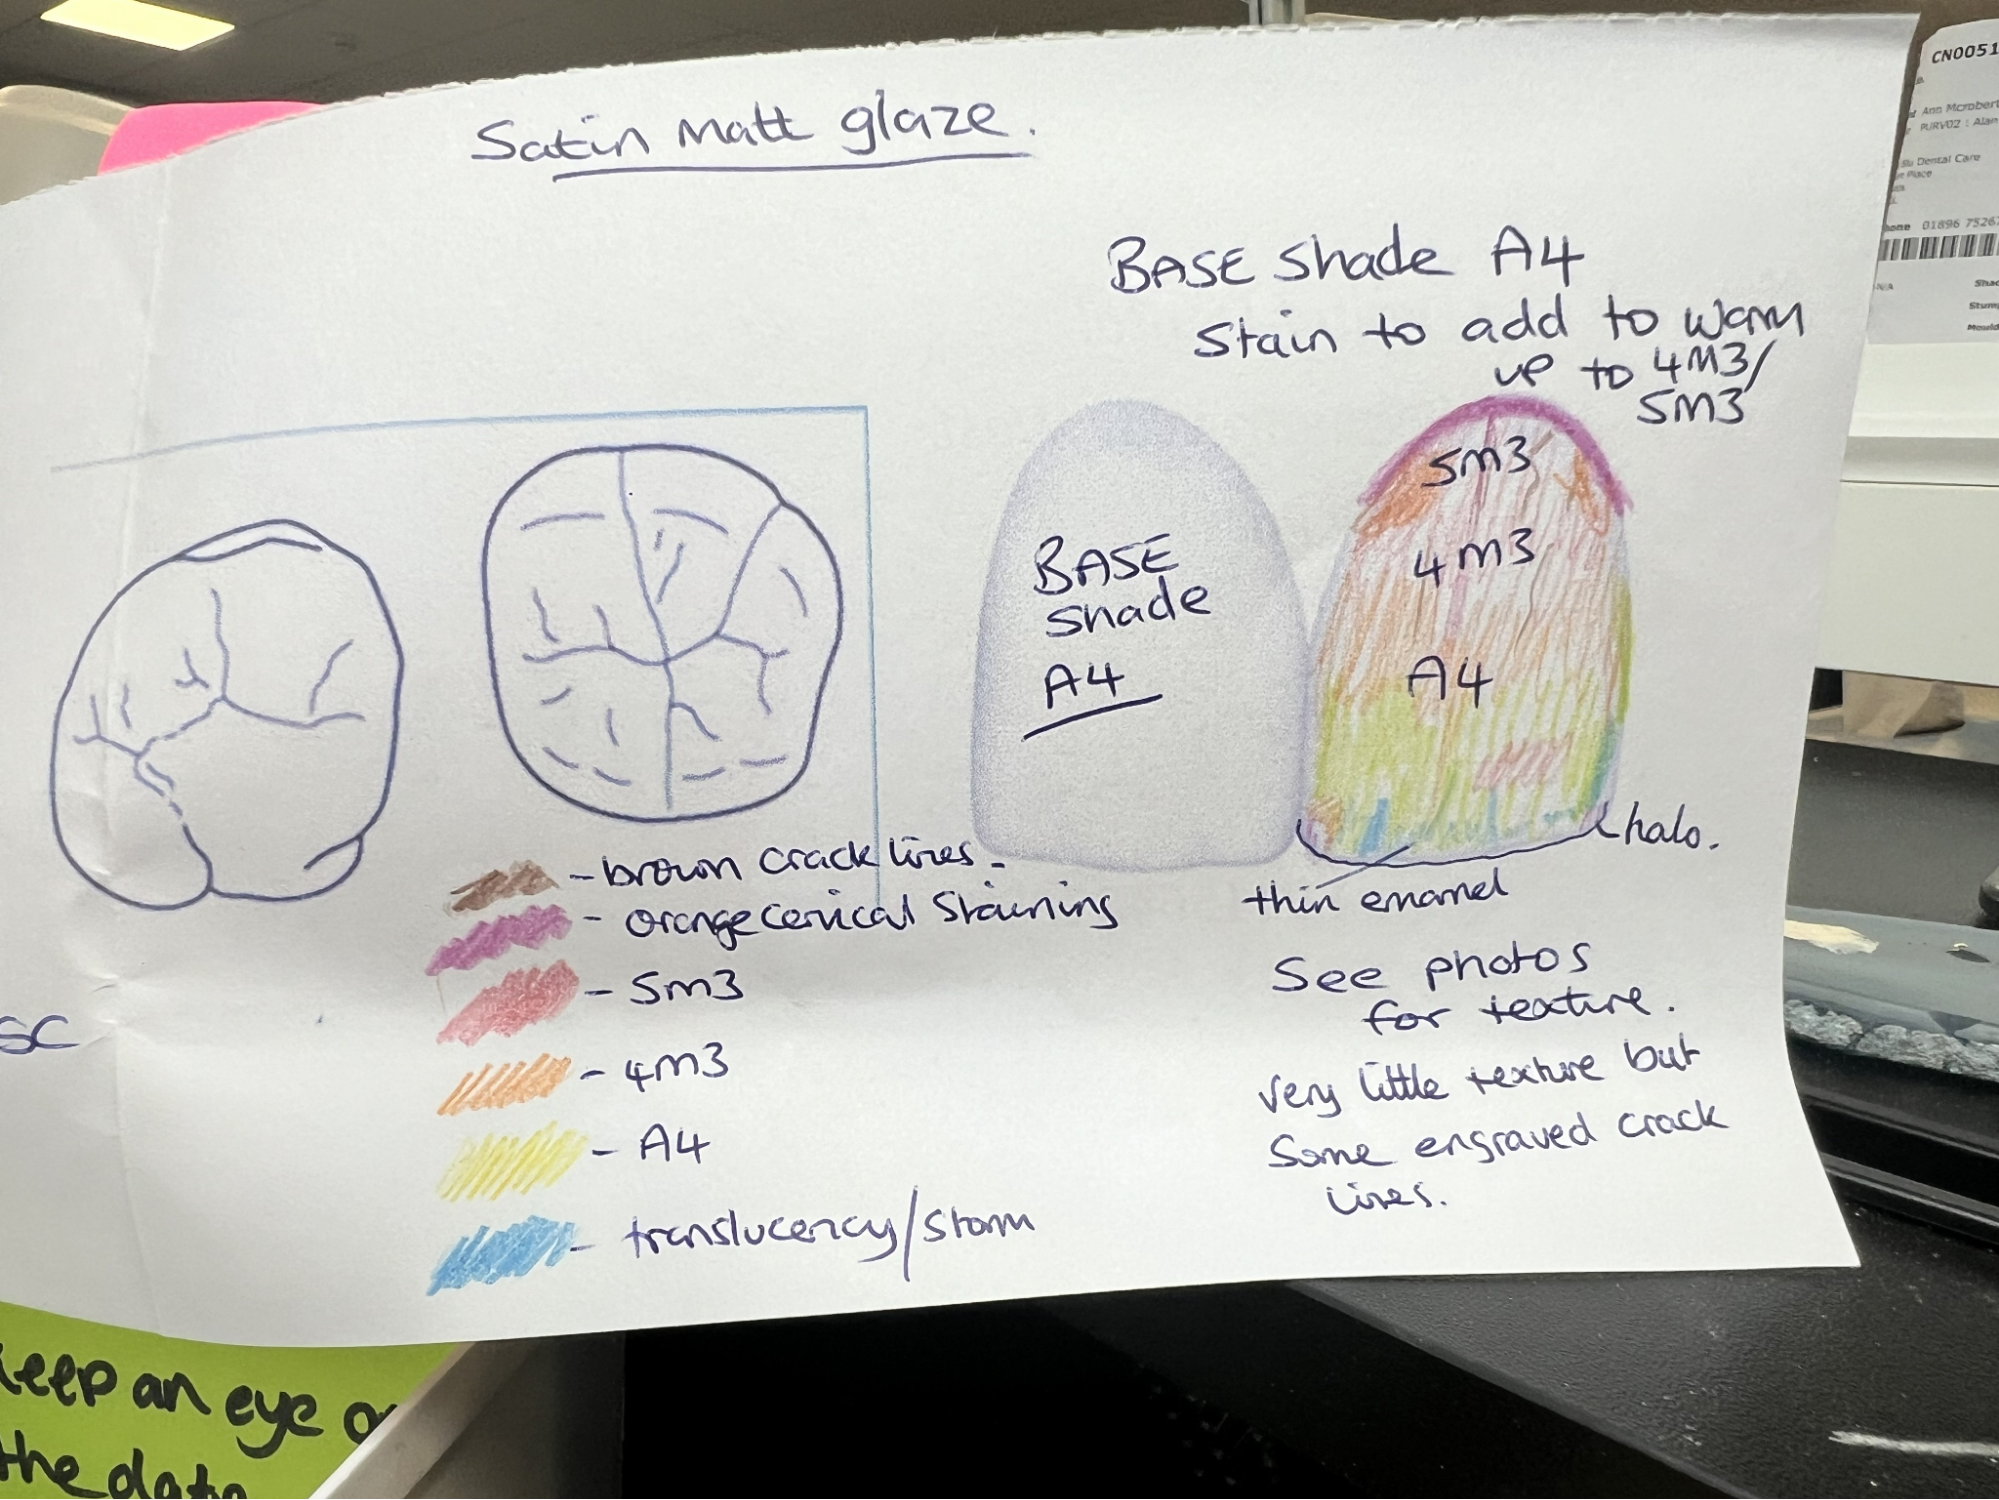 Satin matt glaze.
BASE shade A4
Stain to add to warm
up to 4M3/
5M3
BASE
shade
A4
5m3
4m3
A4
halo.
thin enamel
- brown crack lines.
- orange cervical Staining
- 5m3
- 4m3
- A4
- translucency/storm
See photos
for texture.
very little texture but
Some engraved crack
lines.
SC
keep an eye
the date
CN0051
Ann Mcrobert
PURV02 : Alan
Dental Care
Place
01896 7526
N/A